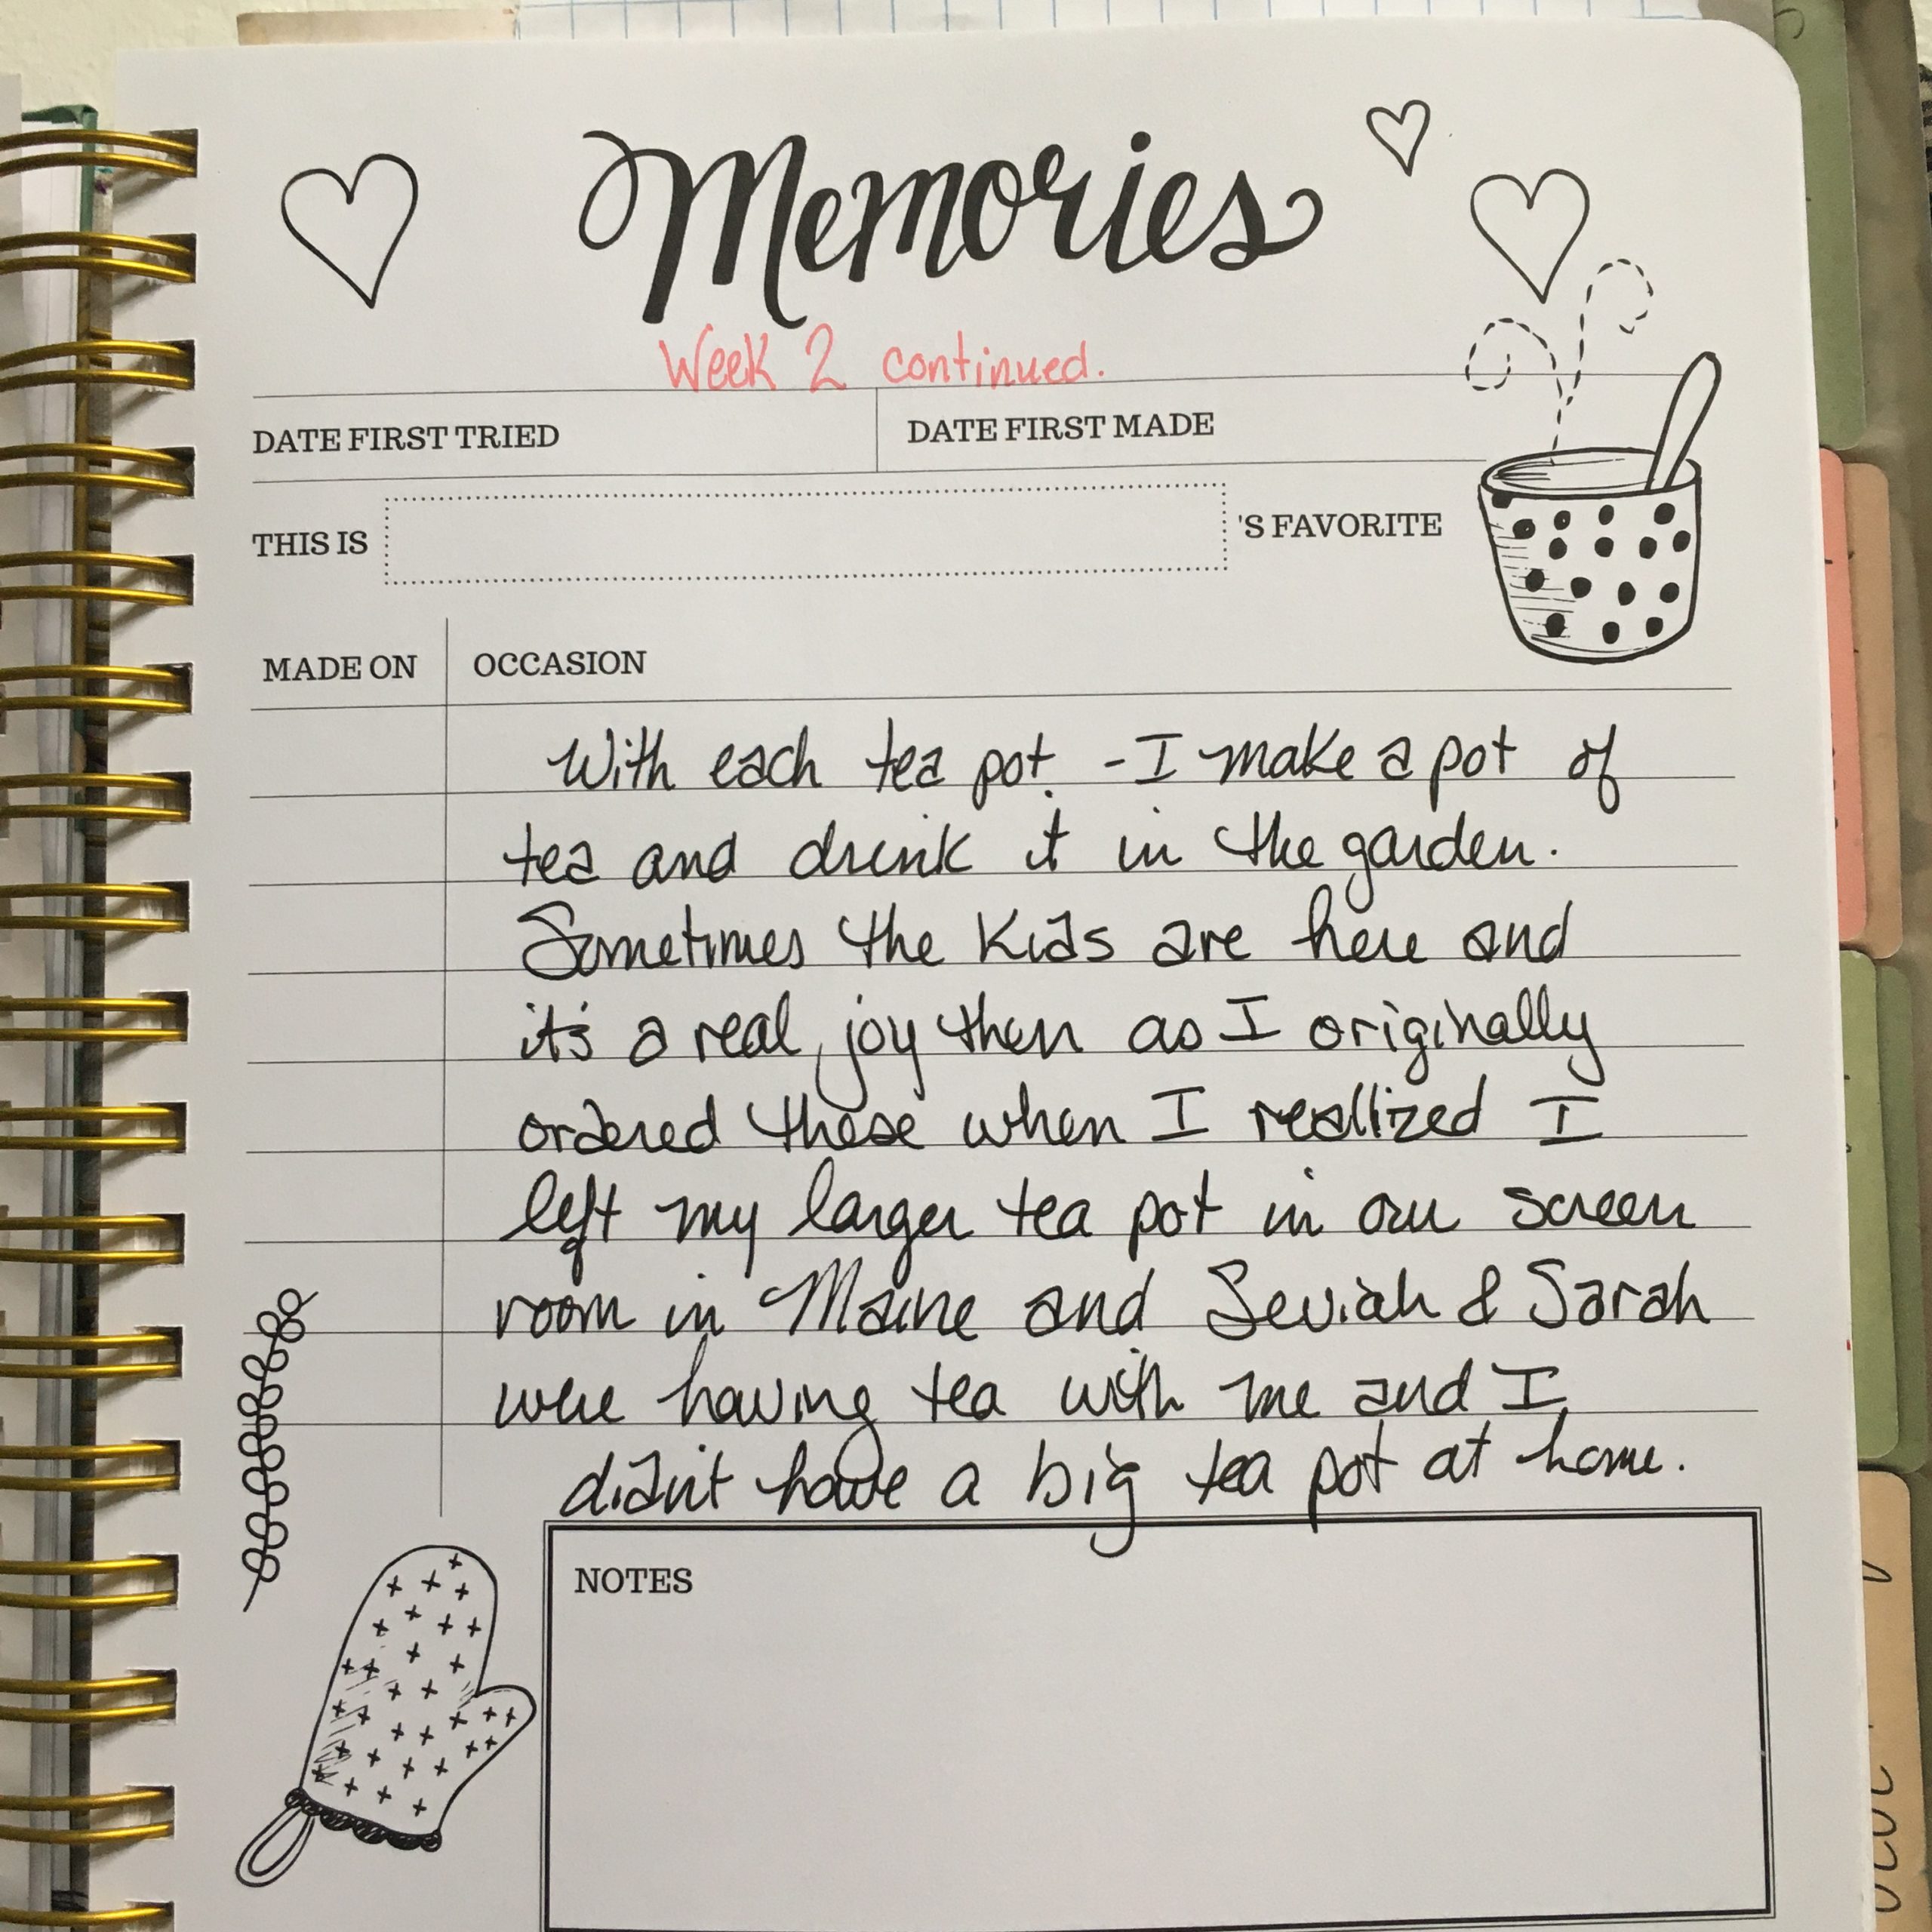 Memories
Week 2 continued.
DATE FIRST TRIED
DATE FIRST MADE
THIS IS 'S FAVORITE
MADE ON OCCASION
With each tea pot. - I make a pot of
tea and drink it in the garden.
Sometimes the Kids are here and
it's a real joy then as I originally
ordered these when I reallized I
left my larger tea pot in our screen
room in Maine and Seviah & Sarah
were having tea with me and I
didn't have a big tea pot at home.
NOTES